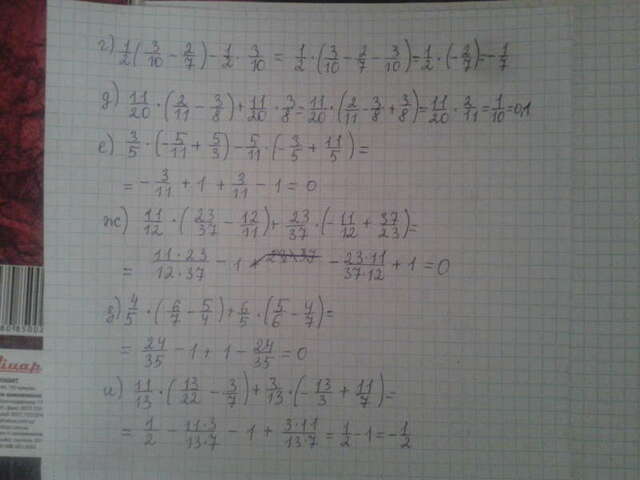 г) 1/2 ( 3/10 - 2/7 ) - 1/2 · 3/10 = 1/2 · ( 3/10 - 2/7 - 3/10 ) = 1/2 · (- 2/7 ) = - 1/7
д) 11/20 · ( 2/11 - 3/8 ) + 11/20 · 3/8 = 11/20 · ( 2/11 - 3/8 + 3/8 ) = 11/20 · 2/11 = 1/10 = 0,1
е) 3/5 · (- 5/11 + 5/3 ) - 5/11 · (- 3/5 + 11/5 ) =
= - 3/11 + 1 + 3/11 - 1 = 0
ж) 11/12 · ( 23/37 - 12/11 ) + 23/37 · (- 11/12 + 37/23 ) =
= 11·23/12·37 - 1 - 23·11/37·12 + 1 = 0
з) 4/5 · ( 6/7 - 5/4 ) + 6/5 · ( 5/6 - 4/7 ) =
= 24/35 - 1 + 1 - 24/35 = 0
и) 11/13 · ( 13/22 - 3/7 ) + 3/13 · (- 13/3 + 11/7 ) =
= 1/2 - 11·3/13·7 - 1 + 3·11/13·7 = 1/2 - 1 = - 1/2